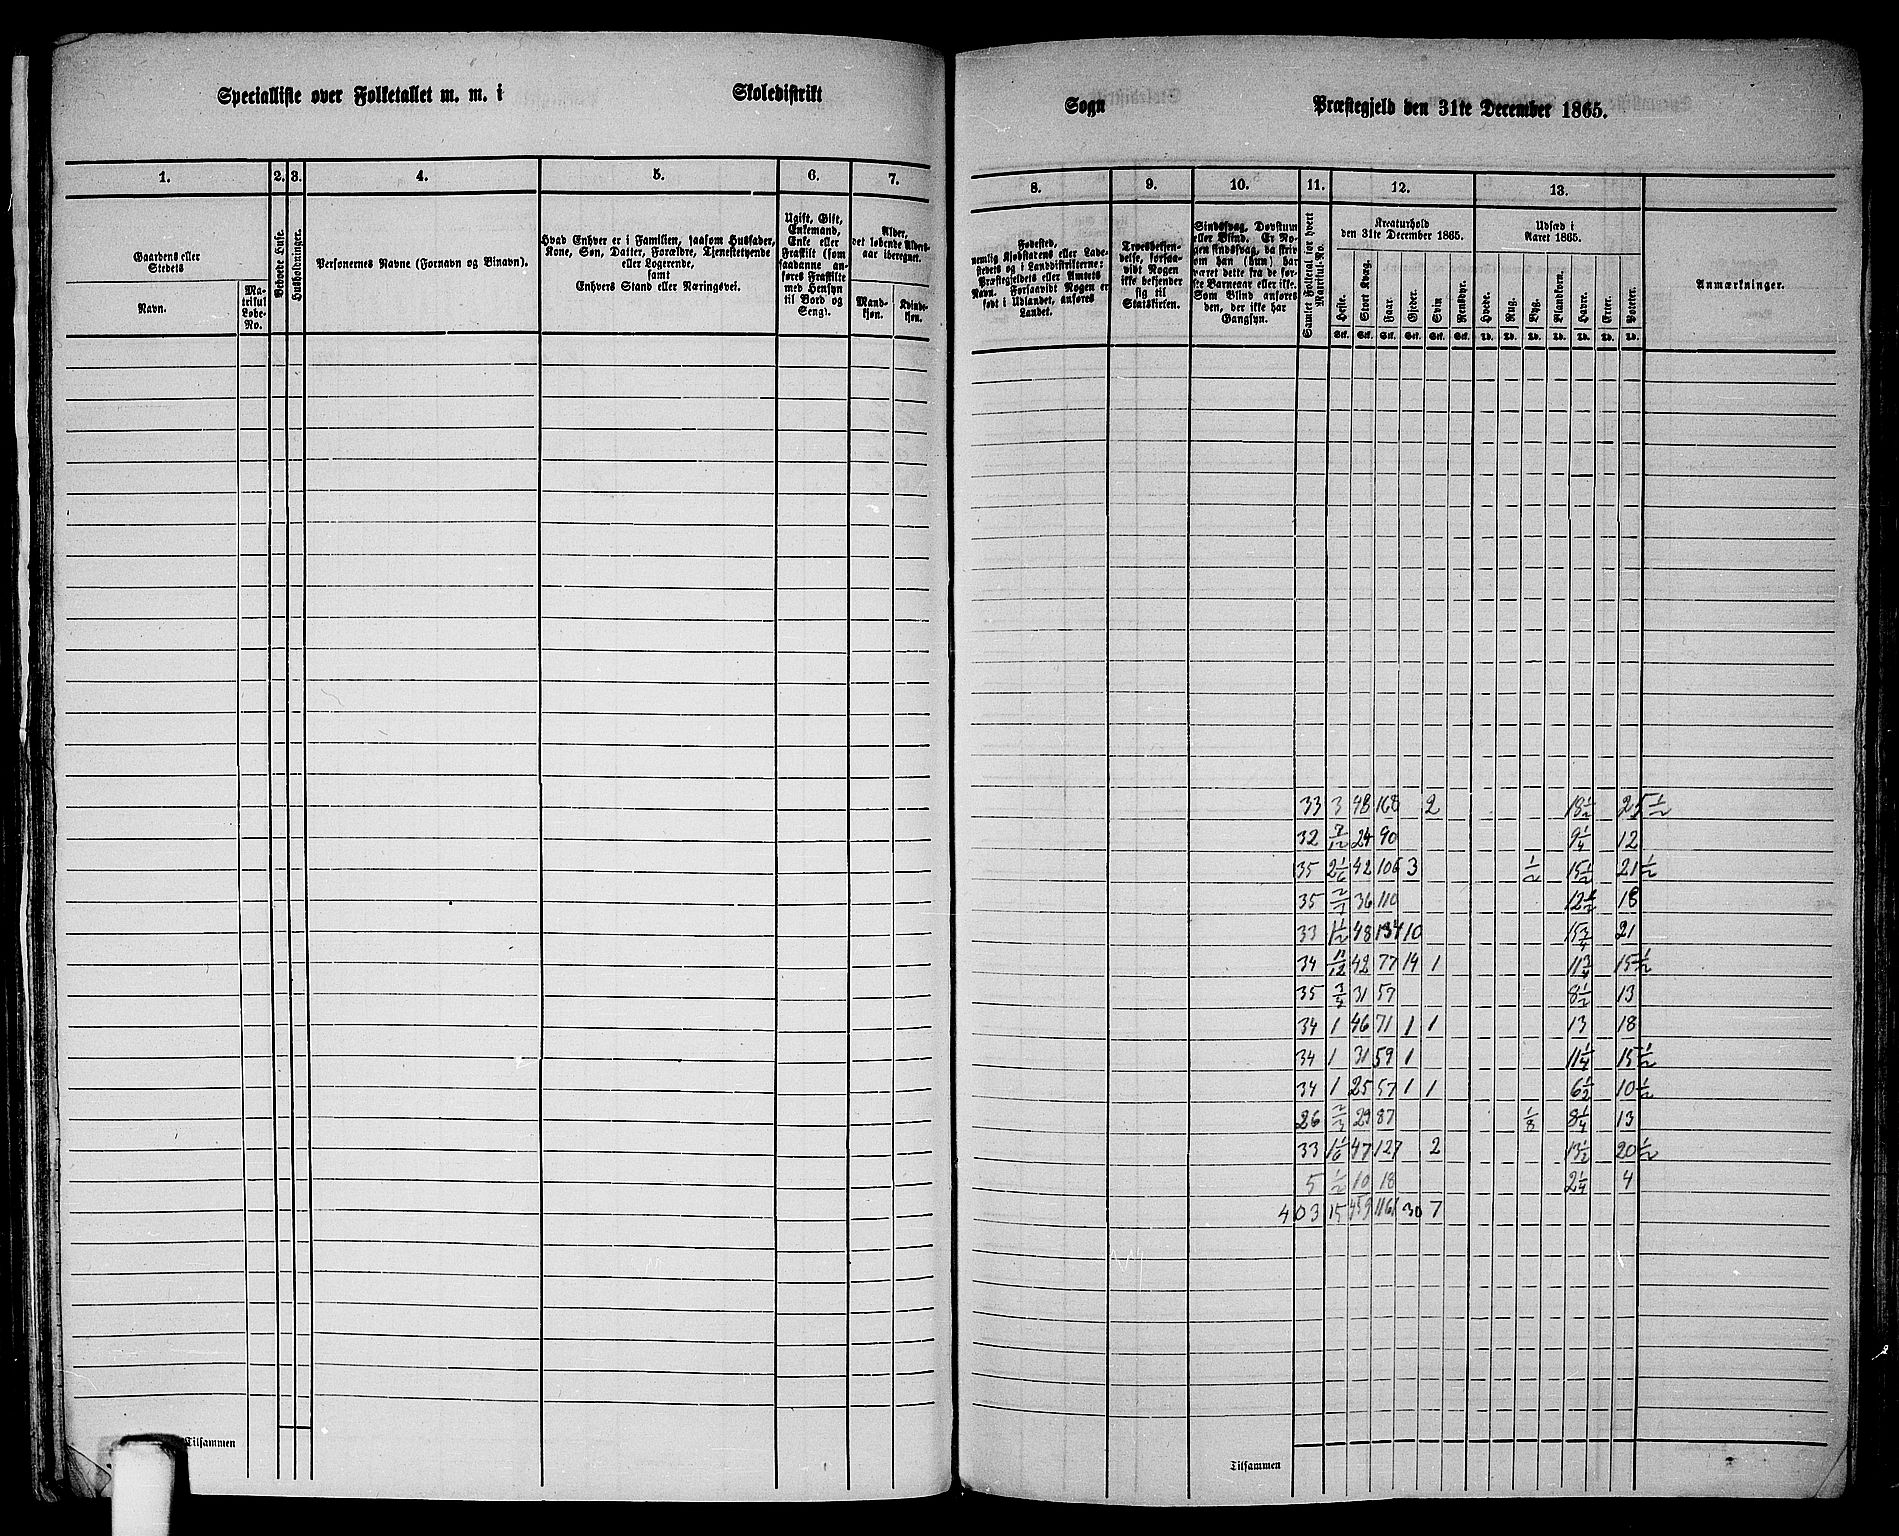 Specialliste over Folketallet m. m. i Skoledistrikt
1. 2. 3. 4. 5. 6. 7.
Gaardens eller Stedets
Navn.
Matrikul Løbe-No.
Beboede Huse.
Husholdninger.
Personernes Navne (Fornavn og Binavn).
Hvad Enhver er i Familien, saasom Husfader,
Kone, Søn, Datter, Forældre, Tjenestetyende
eller Logerende,
samt
Enhvers Stand eller Næringsvei.
Ugift, Gift,
Enkemand,
Enke eller
Fraskilt (som
saadanne anføres Fraskilte
med Hensyn
til Bord og
Seng).
Alder,
det løbende Aldersaar iberegnet.
Mandkjøn.
Kvindekjøn.
Tilsammen
Sogn Præstegjeld den 31te December 1865.
8. 9. 10. 11. 12. 13.
Fødested,
nemlig Kjøbstadens eller Ladestedets og i Landdistrikterne:
Præstegjeldets eller Amtets
Navn. Forsaavidt Nogen er
født i Udlandet, anføres
Landet.
Troesbekjendelse, forsaavidt Nogen
ikke bekjender
sig til
Statskirken.
Sindssvag, Døvstum
eller Blind. Er Nogen sindssvag, da skrives om han (hun) har
været dette fra de første Barneaar eller ikke.
Som Blind anføres
den, der ikke har
Gangsyn.
Samlet Folketal for hvert Matrikul-No.
Kreaturhold
den 31te December 1865.
Heste. Stort Kvæg. Faar. Gjeder. Svin Rensdyr.
Stk. Stk. Stk. Stk. Stk. Stk.
Udsæd i
Aaret 1865.
Hvede. Rug. Byg. Blandkorn. Havre. Erter. Poteter.
Td. Td. Td. Td. Td. Td. Td.
Anmærkninger.
33 3 48 168 2 18 1/2 25 1/2
32 7/12 24 90 9 1/4 12
35 2 1/6 42 106 3 1/2 15 1/2 21 1/2
35 36 110 12 1/2 18
33 1 1/2 48 134 10 15 3/4 21
34 11/12 42 77 14 1 11 3/4 15 1/2
35 3/4 31 57 8 1/2 13
34 1 46 71 1 1 13 18
34 1 31 59 1 11 1/4 15 1/2
34 1 25 57 1 1 6 1/2 10 1/2
26 2/3 29 87 1/8 8 1/4 13
33 1 1/6 47 127 2 13 1/2 20 1/2
5 1/2 10 18 2 1/4 4
403 15 459 1161 30 7
Tilsammen